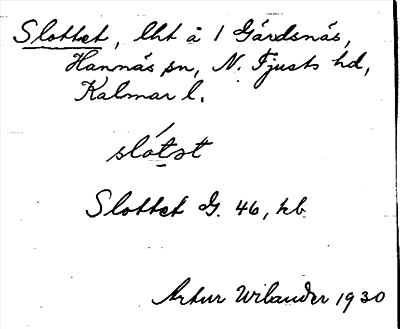 Slottet, lht å 1 Gårdsnäs,
Hannäs sn, N. Tjusts hd,
Kalmar l.
slótət
Slottet G. 46, kb
Artur Wilander 1930